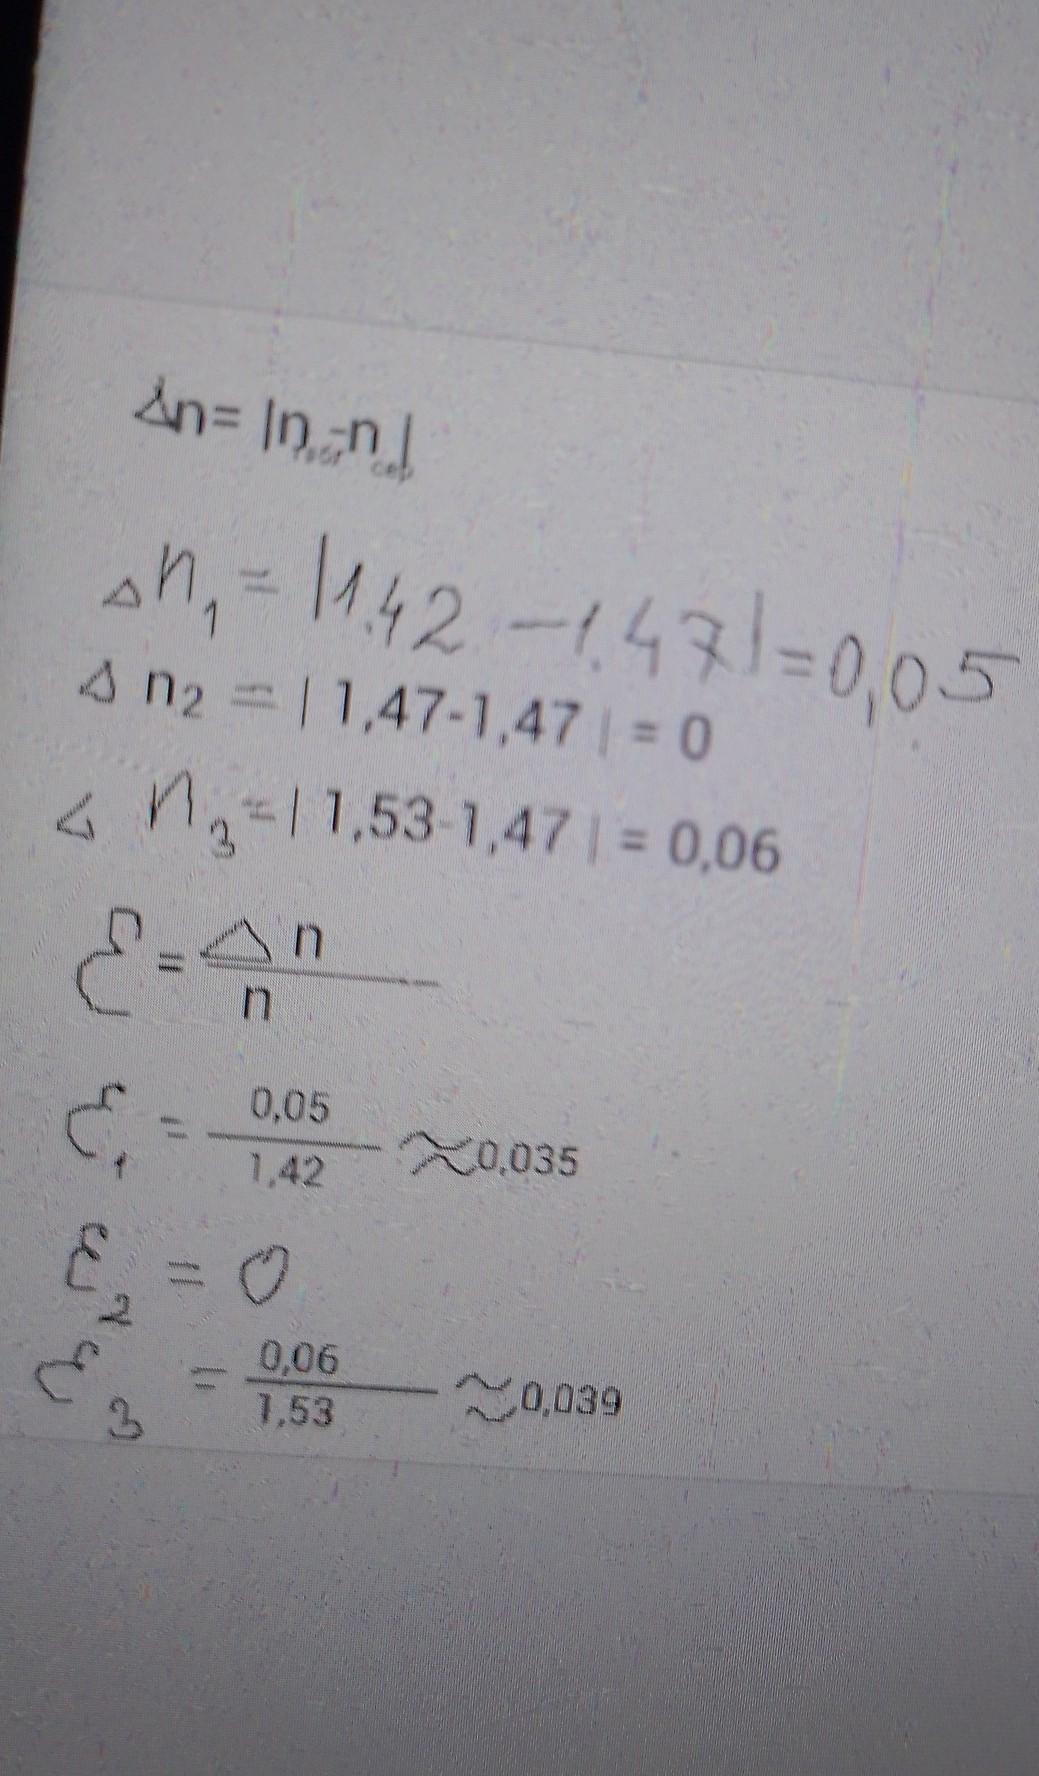 Δn= |n -n |
Δn₁ = |1.42 - 1.47| = 0,05
Δ n₂ = | 1,47-1,47 | = 0
Δ n₃ = | 1,53-1,47 | = 0,06
ℰ = Δ n / n
ℰ₁ = 0,05 / 1,42 ≈ 0,035
ℰ₂ = 0
ℰ₃ = 0,06 / 1,53 ≈ 0,039